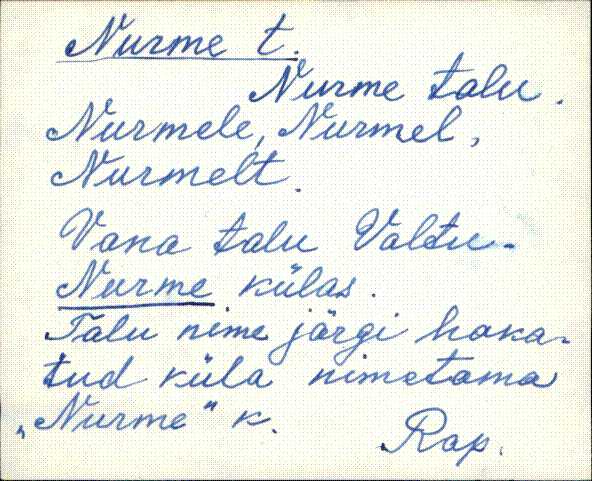 Nurme t.
Nurme talu.
Nurmele, Nurmel,
Nurmelt.
Vana talu Valtu-
Nurme külas.
Talu nime järgi haka-
tud küla nimetama
„Nurme" k.
Rap.